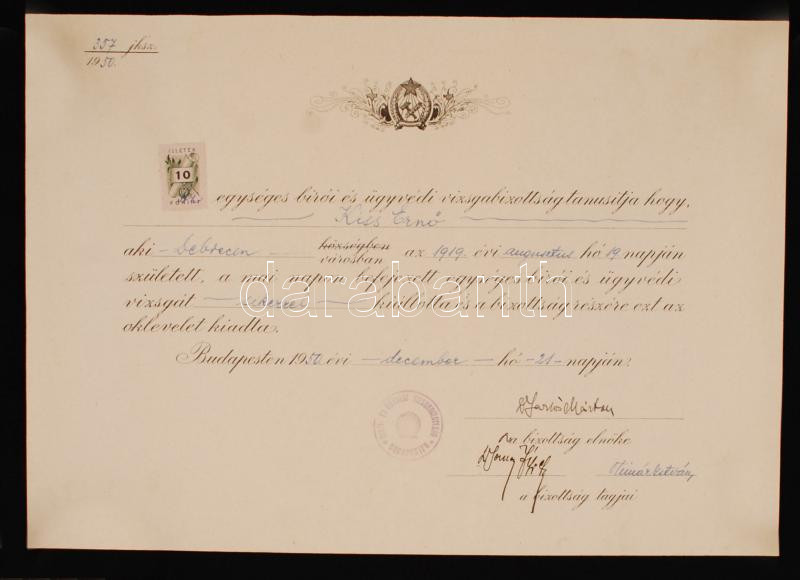 357 jksz.
1950.
ILLETÉK
10
egységes birói és ügyvédi vizsgabizottság tanusitja hogy,
Kiss Ernő
aki Debrecen községben városban az 1919. évi augusztus hó 19 napján
született, a mai napon befejezett egységes birói és ügyvédi
vizsgát sikerrel kiállotta és a bizottság részére ezt az
oklevelet kiadta.
Budapesten 1950. évi december hó 21 napján.
darabanth
Márton
a bizottság elnöke
Timár István
a bizottság tagjai